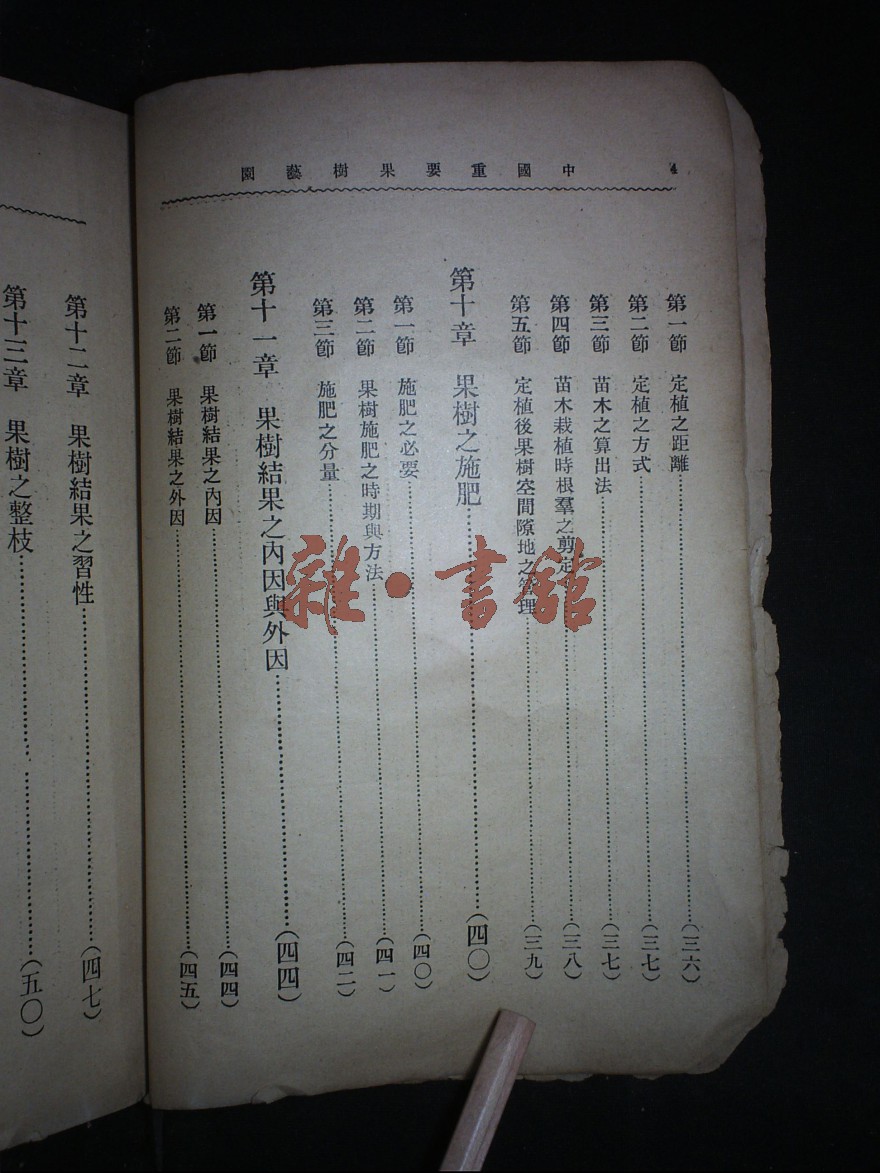 中國重要果樹藝園 4
第一節 定植之距離……(三六)
第二節 定植之方式……(三七)
第三節 苗木之算出法……(三七)
第四節 苗木栽植時根羣之剪定……(三八)
第五節 定植後果樹空間隙地之管理……(三九)
第十章 果樹之施肥……(四〇)
第一節 施肥之必要……(四〇)
第二節 果樹施肥之時期與方法……(四一)
第三節 施肥之分量……(四二)
第十一章 果樹結果之內因與外因……(四四)
第一節 果樹結果之內因……(四四)
第二節 果樹結果之外因……(四五)
第十二章 果樹結果之習性……(四七)
第十三章 果樹之整枝……(五〇)
雜·書館